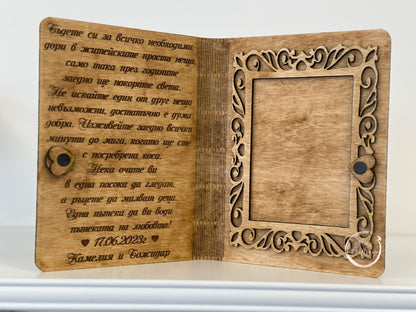 Бъдете си за всичко необходими,
дори в житейските прости неща,
само така през годините
заедно ще покорите света.
Не искайте един от друг неща
невъзможни, достатъчно е дума
добра. Изживейте заедно всички
минути до мига, когато ще сте
с посребрена коса.
Нека очите ви
в една посока да гледат,
а ръцете да милват деца.
Една пътека да ви води,
пътеката на любовта!
♥ 17.06.2023г ♥
Камелия и Божидар